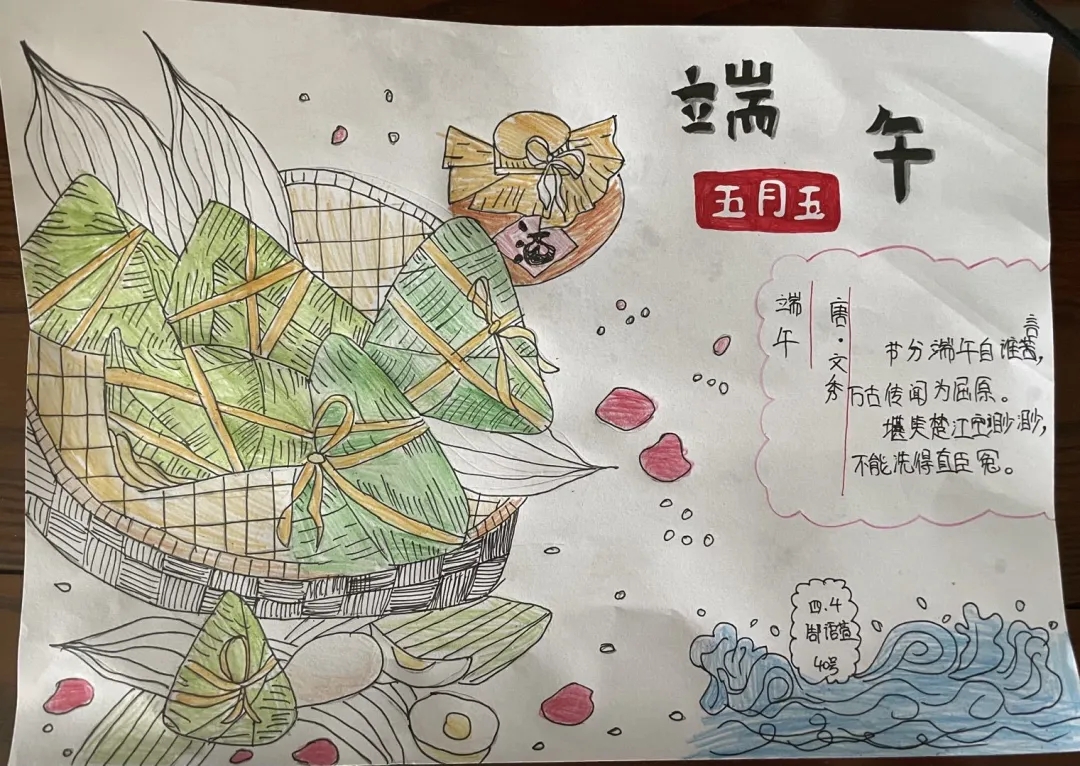 端午
五月五
酒
端午
唐·文秀
节分端午自谁言,
万古传闻为屈原。
堪笑楚江空渺渺,
不能洗得直臣冤。
四.4
40号